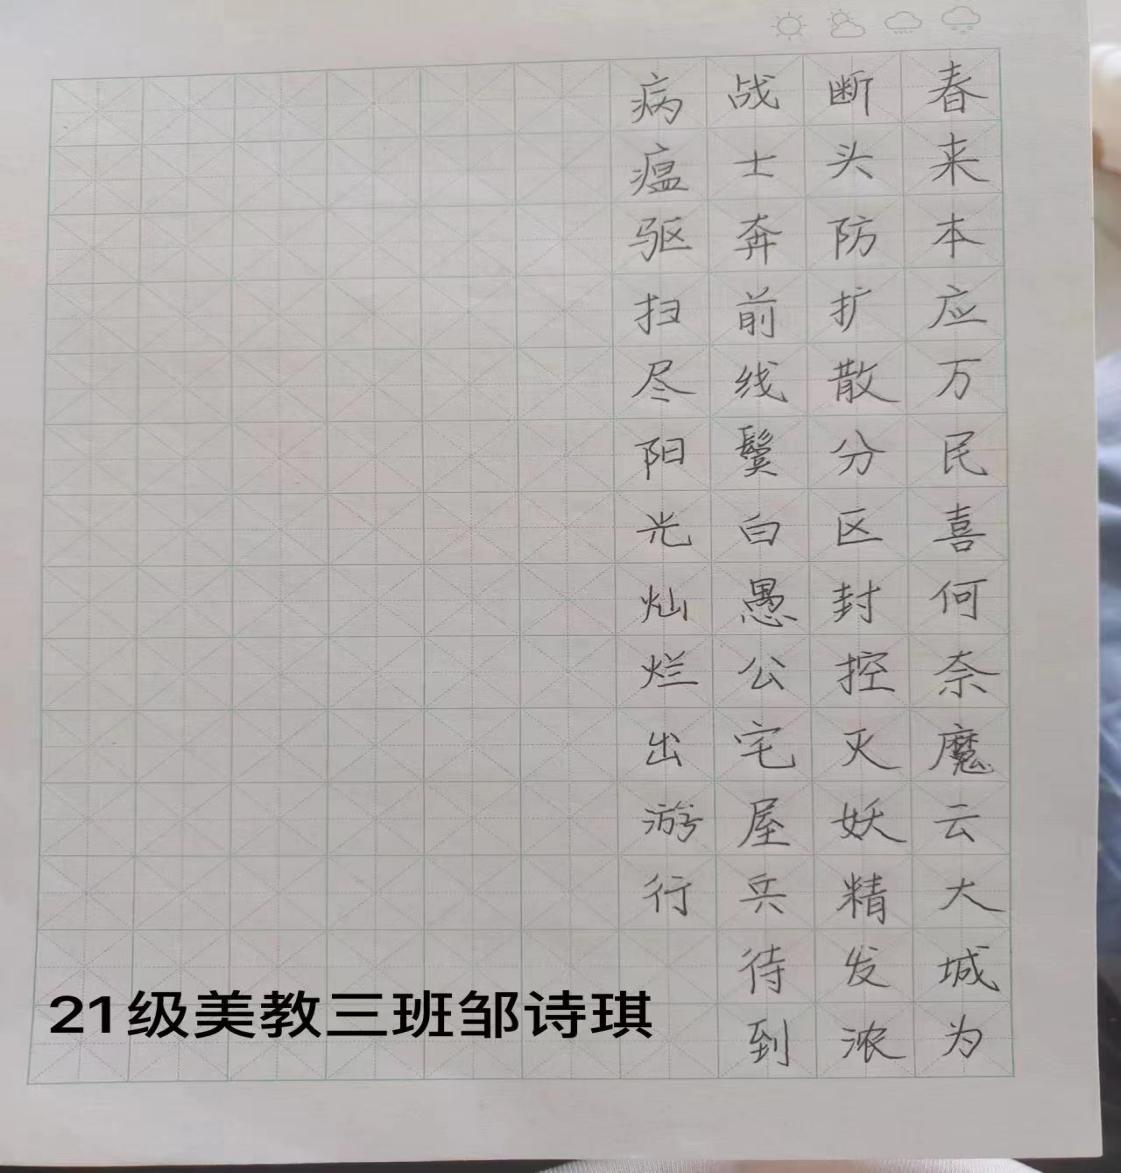 春来本应万民喜何奈魔云大城为
断头防扩散分区封控灭妖精发浓
战士奔前线鬓白愚公宅屋兵待到
病瘟驱扫尽阳光灿烂出游行
21级美教三班邹诗琪